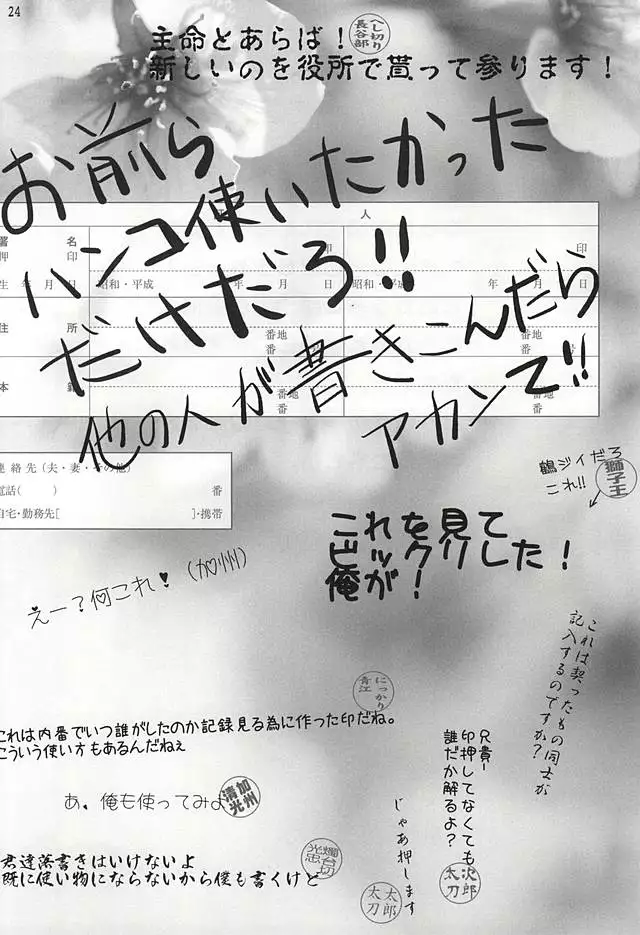 24
主命とあらば！
へし切り
長谷部
新しいのを役所で貰って参ります！
お前ら
ハンコ使いたかった
だけだろ!!
他の人が書きこんだら
アカンて!!
人
署名
押印
印
印
生年月日
昭和・平成 年 月 日
昭和・平成 年 月 日
住所
番地
番
番地
番
本籍
番地
番
番地
番
連絡先（夫・妻・その他）
電話（ ） 番
自宅・勤務先[ ]・携帯
鶴ジイだろ
これ!!
獅子王
これを見て
ビックリした！
俺が！
えー？何これ♥（加州）
これは契ったもの同士が
記入するのですか？
にっかり
青江
これは内番でいつ誰がしたのか記録見る為に作った印だね。
こういう使い方もあるんだねぇ
あ、俺も使ってみよ
加州
清光
兄貴ー
印押してなくても
誰だか解るよ？
次郎
太刀
じゃあ押します
太郎
太刀
君達落書きはいけないよ
既に使い物にならないから僕も書くけど
燭台切
光忠